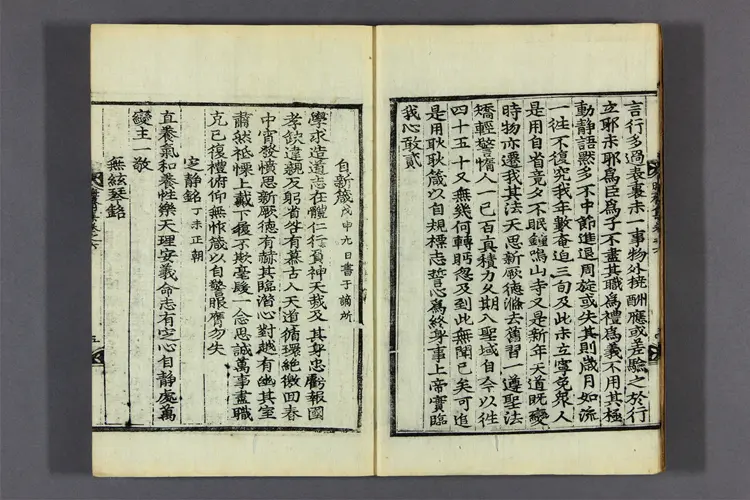 言行多過表裏未一事物外撓酬應或差驗之於行
立耶未耶爲臣爲子不盡其職爲禮爲義不用其極
動靜語默多不中節進退周旋或失其則歲月如流
一徃不復究我年數奄迫三旬及此未立寧免衆人
是用自省竟夕不眠鐘鳴山寺又是新年天道旣變
時物亦遷我其法天思新厥德滌去舊習一遵聖法
矯輕警惰人一己百真積力久期入聖域自今以徃
四十五十又無幾何轉眄忽及到此無聞已矣可追
是用耿耿箴以自規標志誓心爲終身事上帝實臨
我心敢貳
自新箴 戊申九日書于謫所
學求造道志在體仁行負神天禍及其身忠虧報國
孝欽違親反躬省咎有慕古人天道循環絶徼回春
中宵發憤思新厥德有赫其臨潜心對越有幽其室
肅然祗慄上戴下履不欺毫髮一念思誠萬事盡職
克已復禮俯仰無怍箴以自警服膺勿失
定靜銘 丁未正朝
直養氣和養性樂天理安義命志有定心自靜處萬
變主一敬
無絃琴銘